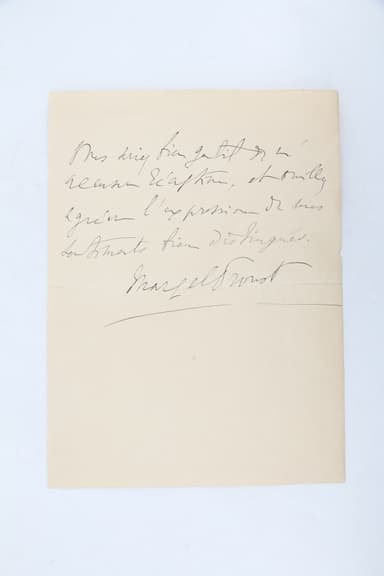 Vous seriez bien gentil de m'
accuser réception, et veuillez
agréer l'expression de mes
sentiments bien distingués.
Marcel Proust